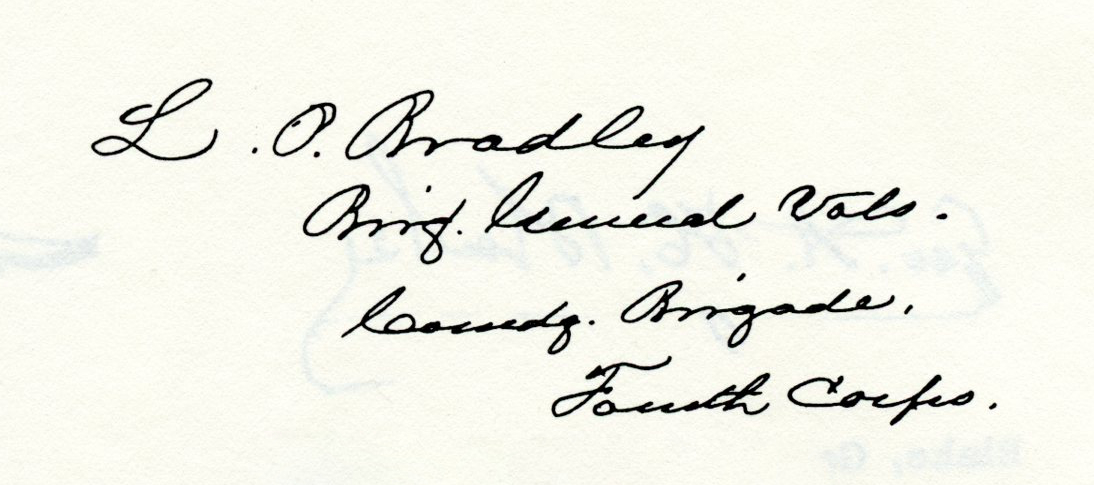 L. P. Bradley
Brig. General Vols.
Comdg. Brigade,
Fourth Corps.